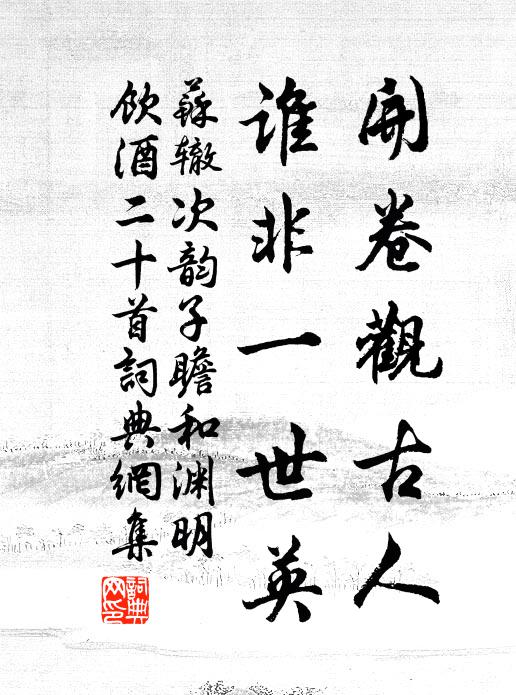 開卷觀古人
誰非一世英
蘇辙次韵子瞻和渊明
飲酒二十首詞典網集
詞典
网印